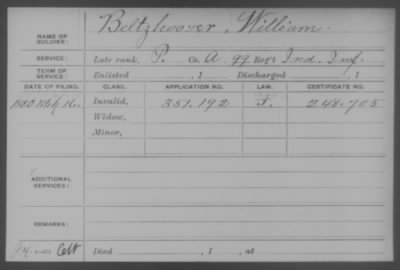 NAME OF SOLDIER: Beltzhoover, William.
SERVICE: Late rank, P. Co. A, 99 Reg't Ind. Inf.
TERM OF SERVICE: Enlisted , 1 Discharged , 1
DATE OF FILING. CLASS. APPLICATION NO. LAW. CERTIFICATE NO.
1880 Mch 16. Invalid, 351.192 F. 248.705
Widow,
Minor,
ADDITIONAL SERVICES:
REMARKS:
Died , 1 , at